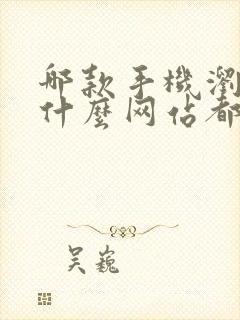 哪款手機瀏
什麼网佔都
吴巍